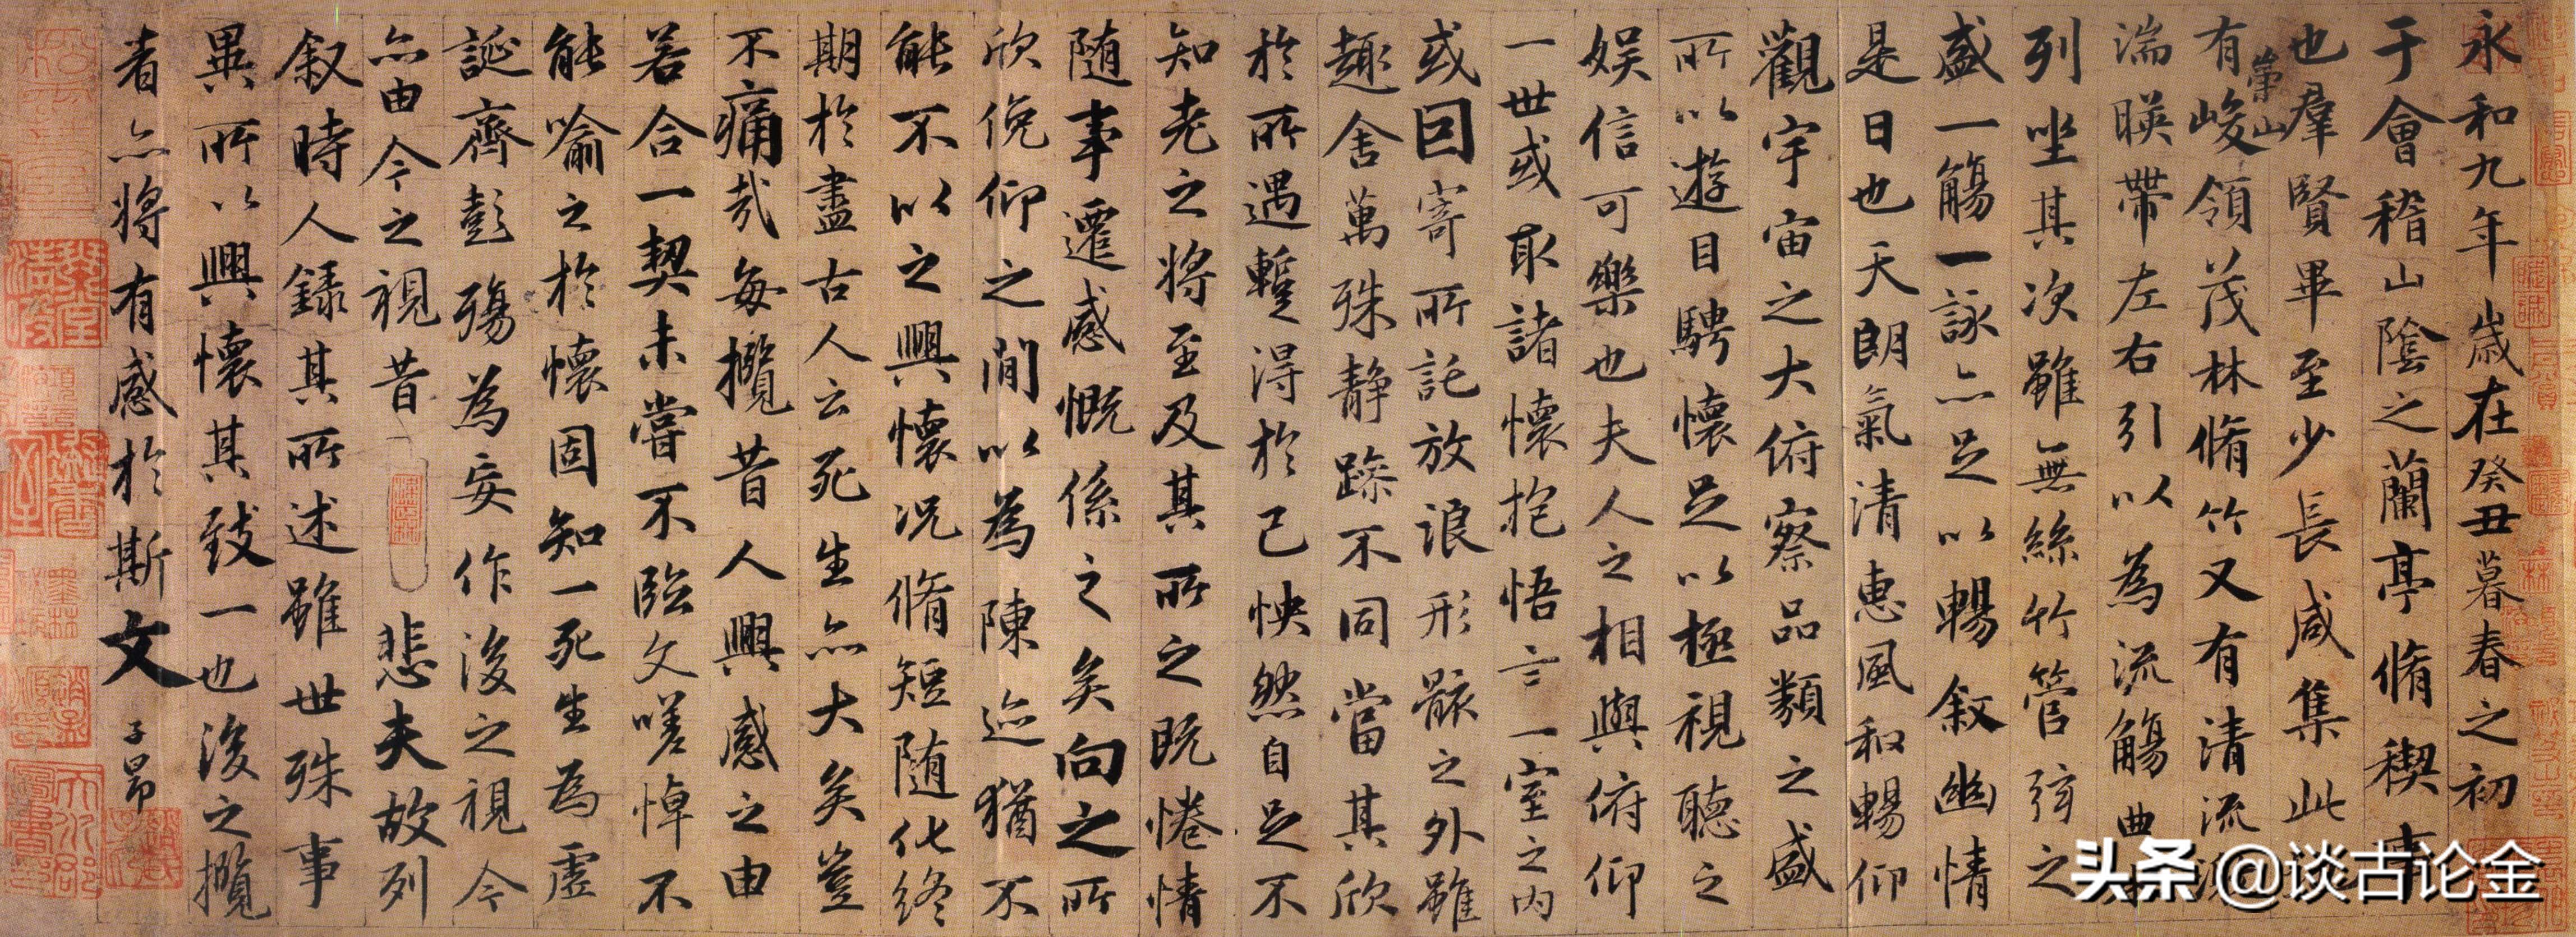 永和九年歲在癸丑暮春之初
于會稽山陰之蘭亭脩稧事
也羣賢畢至少長咸集此
崇山
有峻領茂林脩竹又有清流
湍暎帶左右引以為流觴曲
列坐其次雖無絲竹管弦之
盛一觴一詠亦足以暢叙幽情
是日也天朗氣清惠風和暢仰
觀宇宙之大俯察品類之盛
所以遊目騁懷足以極視聽之
娛信可樂也夫人之相與俯仰
一世或取諸懷抱悟言一室之內
或因寄所託放浪形骸之外雖
趣舍萬殊静躁不同當其欣
於所遇蹔得於己怏然自足不
知老之將至及其所之既惓情
随事遷感慨係之矣向之所
欣俛仰之間以為陳迹猶不
能不以之興懷况脩短随化終
期於盡古人云死生亦大矣豈
不痛哉每攬昔人興感之由
若合一契未嘗不臨文嗟悼不
能喻之於懷固知一死生為虛
誕齊彭殤為妄作後之視今
亦由今之視昔 悲夫故列
叙時人録其所述雖世殊事
異所以興懷其致一也後之攬
者亦將有感於斯文 子昂
头条 @谈古论金